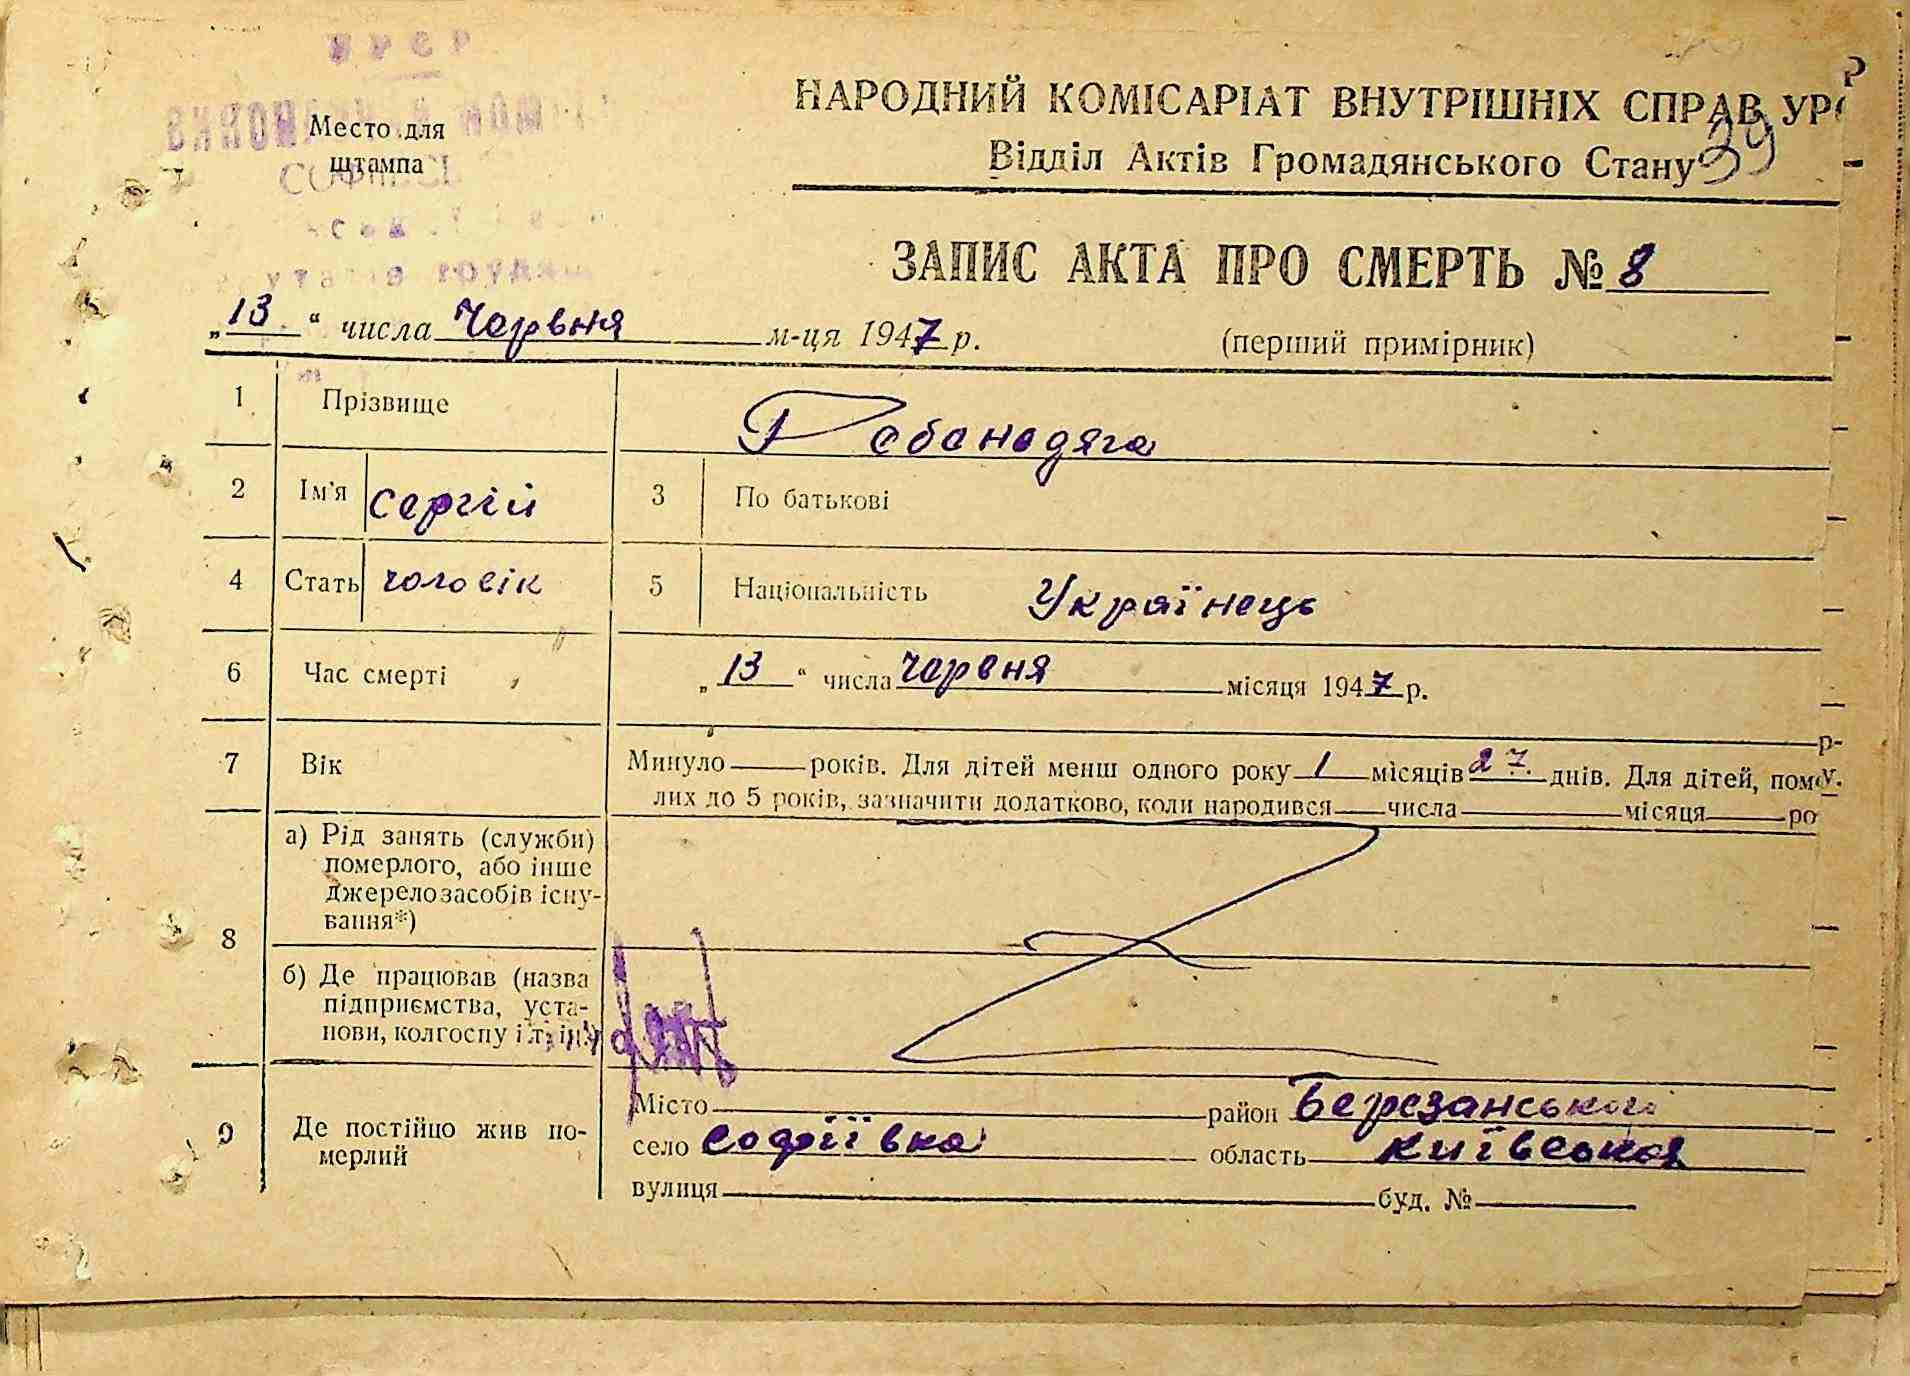 УРСР
Место для
штампа
НАРОДНИЙ КОМІСАРІАТ ВНУТРІШНІХ СПРАВ УРС
Відділ Актів Громадянського Стану
39
ЗАПИС АКТА ПРО СМЕРТЬ № 8
„13“ числа Червня м-ця 1947 р. (перший примірник)
1 Прізвище
2 Ім'я Сергій 3 По батькові
4 Стать чоловік 5 Національність Українець
6 Час смерті „13“ числа червня місяця 1947 р.
7 Вік Минуло — років. Для дітей менш одного року 1 місяців 27 днів. Для дітей, пом
лих до 5 років, зазначити додатково, коли народився — числа — місяця — ро
8 а) Рід занять (служби)
померлого, або інше
джерело засобів існу-
вання*)
б) Де працював (назва
підприємства, уста-
нови, колгоспу і т. ін.)
9 Де постійно жив по-
мерлий
Місто — район Березанський
село Софіївка область Київська
вулиця — буд. № —